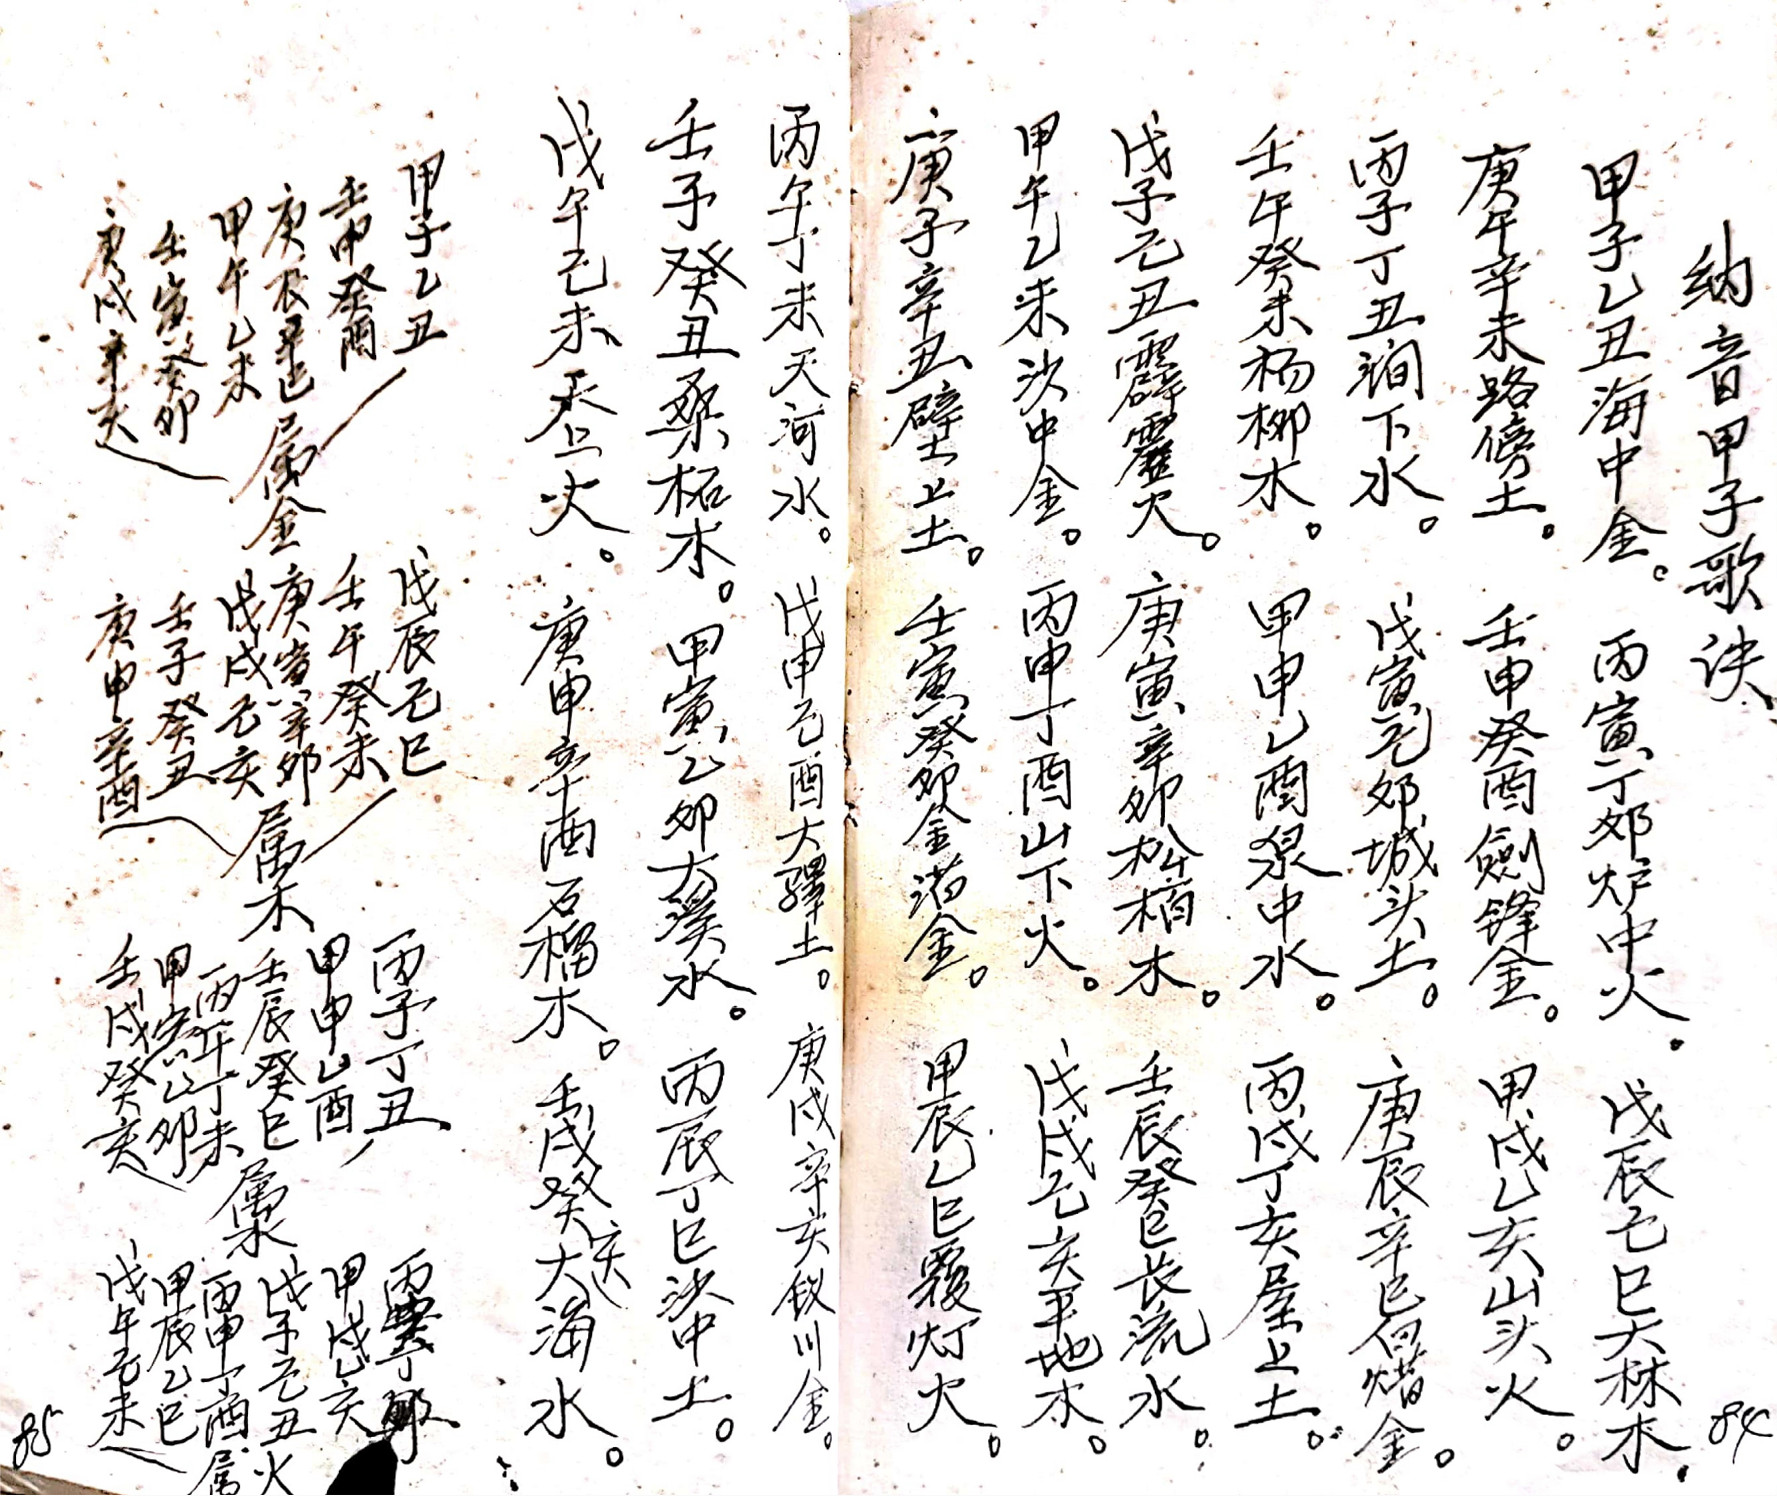 纳音甲子歌诀
甲子乙丑海中金。丙寅丁卯炉中火。戊辰己巳大林木.
庚午辛未路傍土。壬申癸酉劍锋金。甲戌乙亥山头火。
丙子丁丑涧下水。戊寅己卯城头土。庚辰辛巳白蜡金。
壬午癸未杨柳木。甲申乙酉泉中水。丙戌丁亥屋上土。
戊子己丑霹靂火。庚寅辛卯松栢木。壬辰癸巳长流水。
甲午乙未沙中金。丙申丁酉山下火。戊戌己亥平地木。
庚子辛丑壁上土。壬寅癸卯金箔金。甲辰乙巳覆灯火。
84
丙午丁未天河水。戊申己酉大驛土。庚戌辛亥钗川金。
壬子癸丑桑柘木。甲寅乙卯大溪水。丙辰丁巳沙中土。
戊午己未天上火。庚申辛酉石榴木。壬戌癸亥大海水。
甲子乙丑
壬申癸酉
庚辰辛巳
甲午乙未
壬寅癸卯
庚戌辛亥
属金
戊辰己巳
壬午癸未
庚寅辛卯
戊戌己亥
壬子癸丑
庚申辛酉
属木
丙子丁丑
甲申乙酉
壬辰癸巳
丙午丁未
甲寅乙卯
壬戌癸亥
属水
丙寅丁卯
甲戌乙亥
戊子己丑
丙申丁酉
甲辰乙巳
戊午己未
属火
85